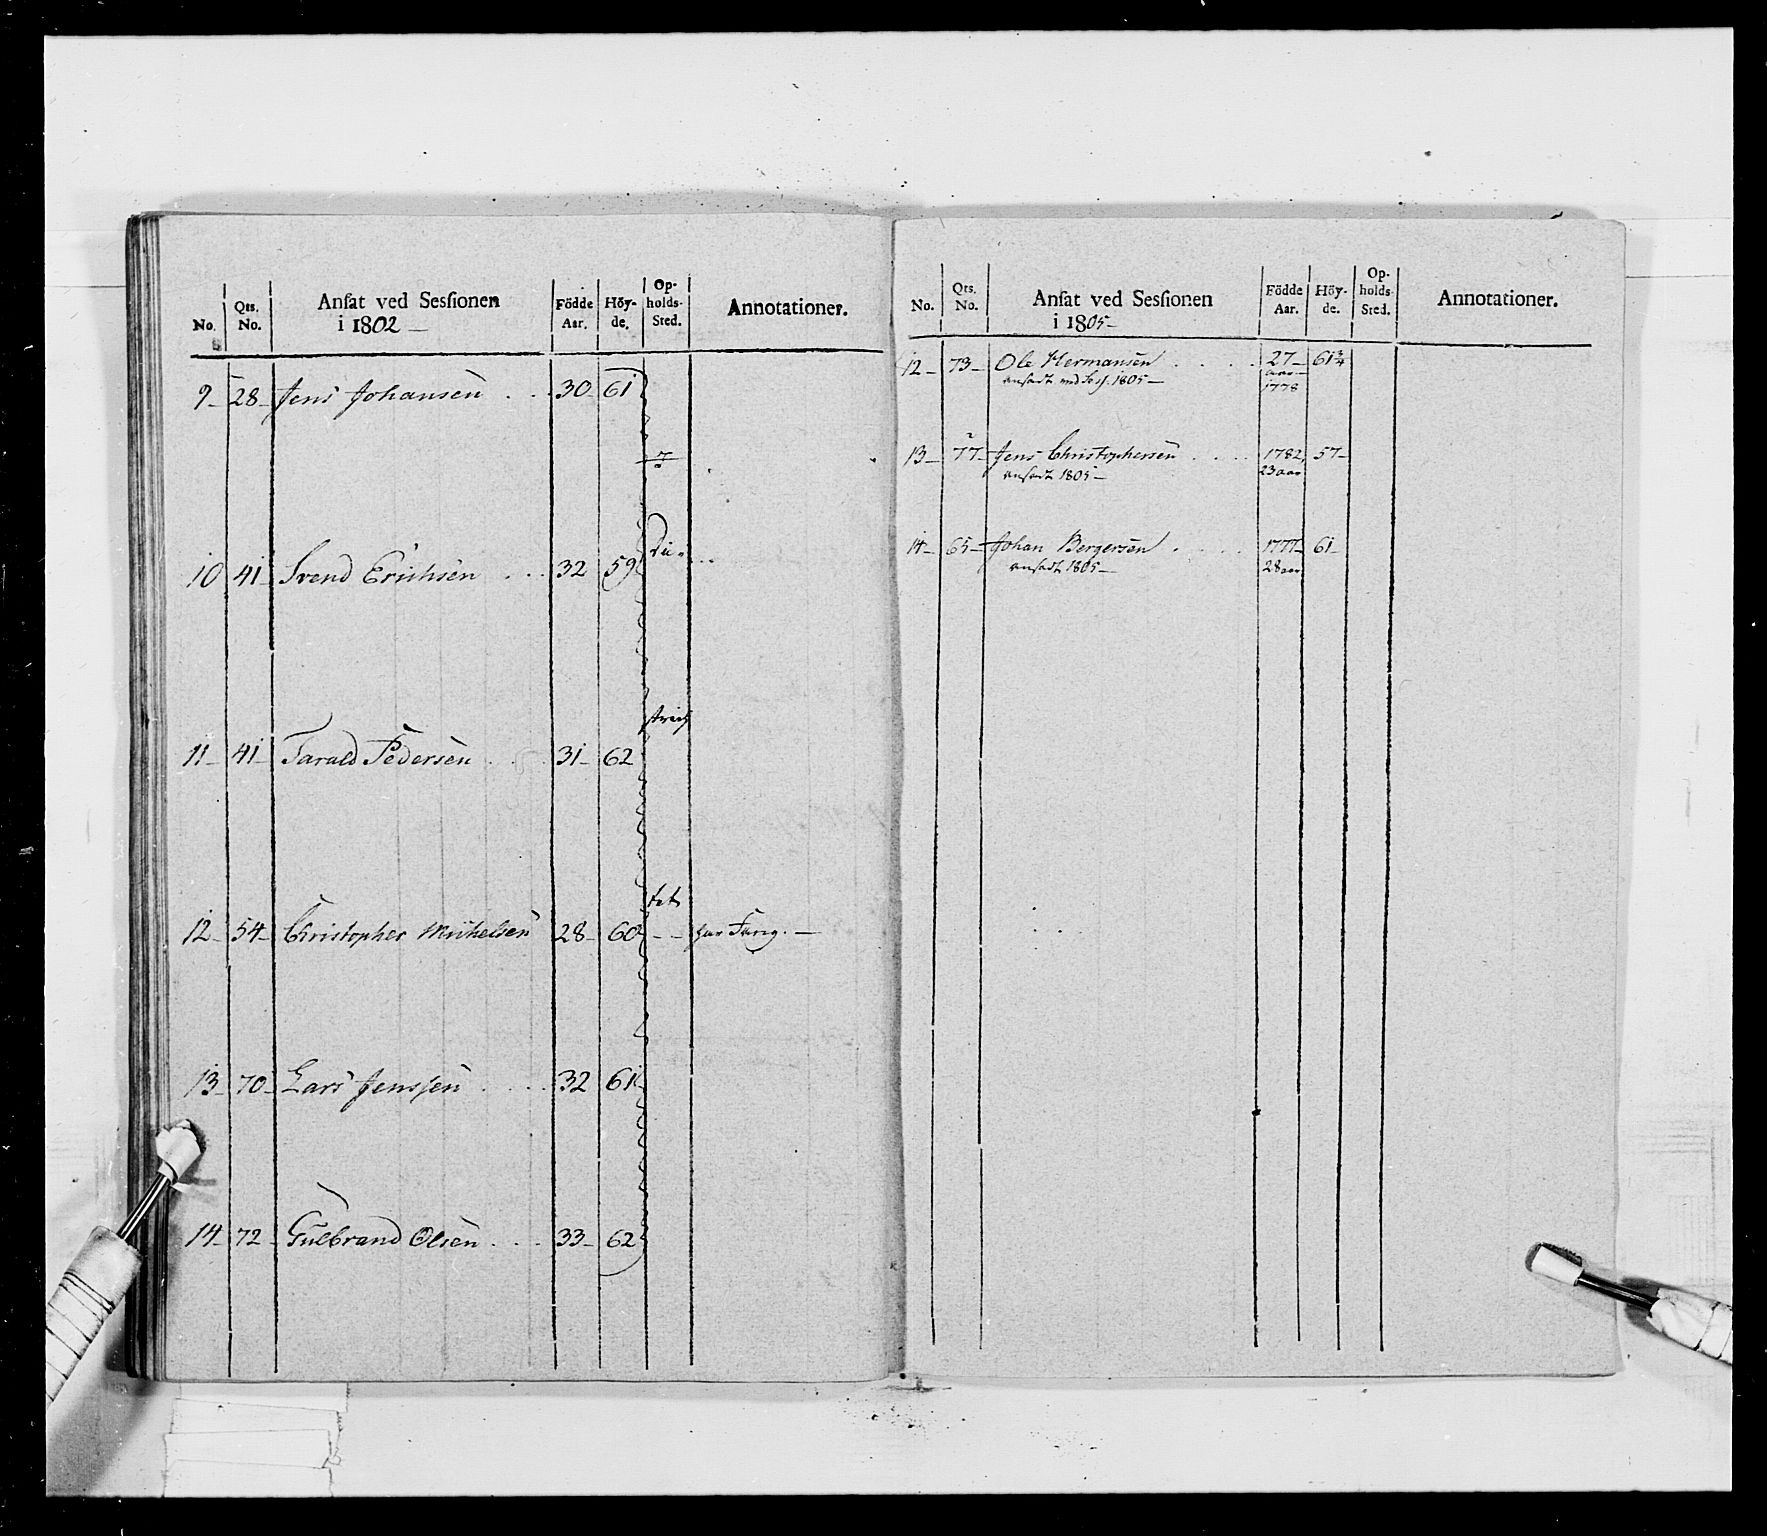 No. Qts. No. Ansat ved Sessionen i 1802 – Födde Aar. Höy-de. Op-holds-Sted. Annotationer.
9– 28– Jens Johansen . . . 30– 61
7
10 41 Svend Erichsen . . . 32 59 Di-
11– 41– Tarald Pedersen . . . 31– 62
strict
12– 54– Christopher Michelsen 28– 60 – – har Fæng. –
tet
13– 70– Lars Jenssen . . . . 32 61–
14– 72– Gulbrand Olsen . . . 33– 62
No. Qts. No. Ansat ved Sessionen i 1805– Födde Aar. Höy-de. Op-holds-Sted. Annotationer.
12– 73– Ole Hermansen . . . . 27– 61¾
ansadt ved Sess. 1805– aar– 1778
13– 77– Jens Christophersen . . . . 1782 57–
ansadt 1805– 23 aar
14– 65– Johan Bergersen . . . . 1777– 61–
ansadt 1805– 28 aar